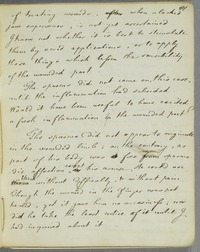 of treating wounds, after when a locked
jaw supervenes, is not yet ascertained
know not whether it is best to stimulate
them by acrid applications, or to apply
those things which lessen the sensibility
of the wounded part
The spasm did not come on, this case,
until the inflammation had subsided.
Would it have been useful to have excited
a fresh inflammation in the wounded part?
The spasms did not appear to originate
in the wounded limb; on the contrary, no
part of his body was so free from spasmo-
dic affection, as his arms. He could use
them without difficulty, & without pain
Though the wound in the finger was not
healed, yet it gave him no uneasiness, nor
did he take the least notice of it until I
had inquired about it